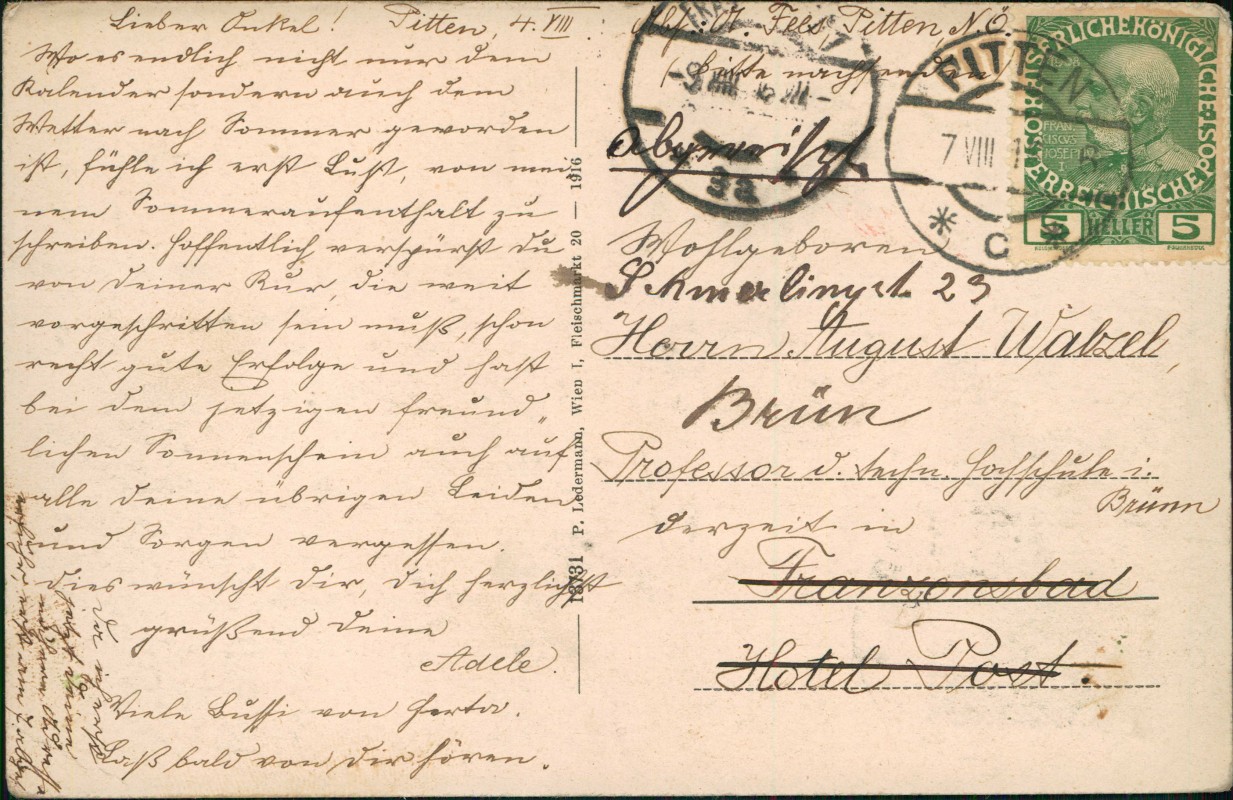 Lieber Onkel! Pitten, 4. VIII.
Wo es endlich nicht nur dem
Kalender sondern auch dem
Wetter nach Sommer geworden
ist, fühle ich erst Lust, von mei
nem Sommeraufenthalt zu
schreiben. Hoffentlich verspürst du
von deiner Kur, die weit
vorgeschritten sein muß, schon
recht gute Erfolge und hast
bei dem jetzigen freund„
lichen Sonnenschein auch auf
alle deine übrigen Leiden
und Sorgen vergessen.
Dies wünscht dir, dich herzlichst
grüßend deine
Adele.
Viele Bussi von Herta.
Laß bald von dir hören.
13731 P. Ledermann, Wien I, Fleischmarkt 20 — 1916
Pitten N.Ö.
(bitte nachsenden)
Wohlgeboren
Schmerlingst. 23
Herrn August Walzel,
Brün
Professor d. techn. Hochschule i.
Brünn
derzeit in
Franzensbad
Hotel Post.
PITTEN
7 VIII 1
* C *
3a
KAISERLICHE KÖNIGLICHE ÖSTERREICHISCHE POST
1908
FRAN
CISCVS
IOSEPH I
5 HELLER 5